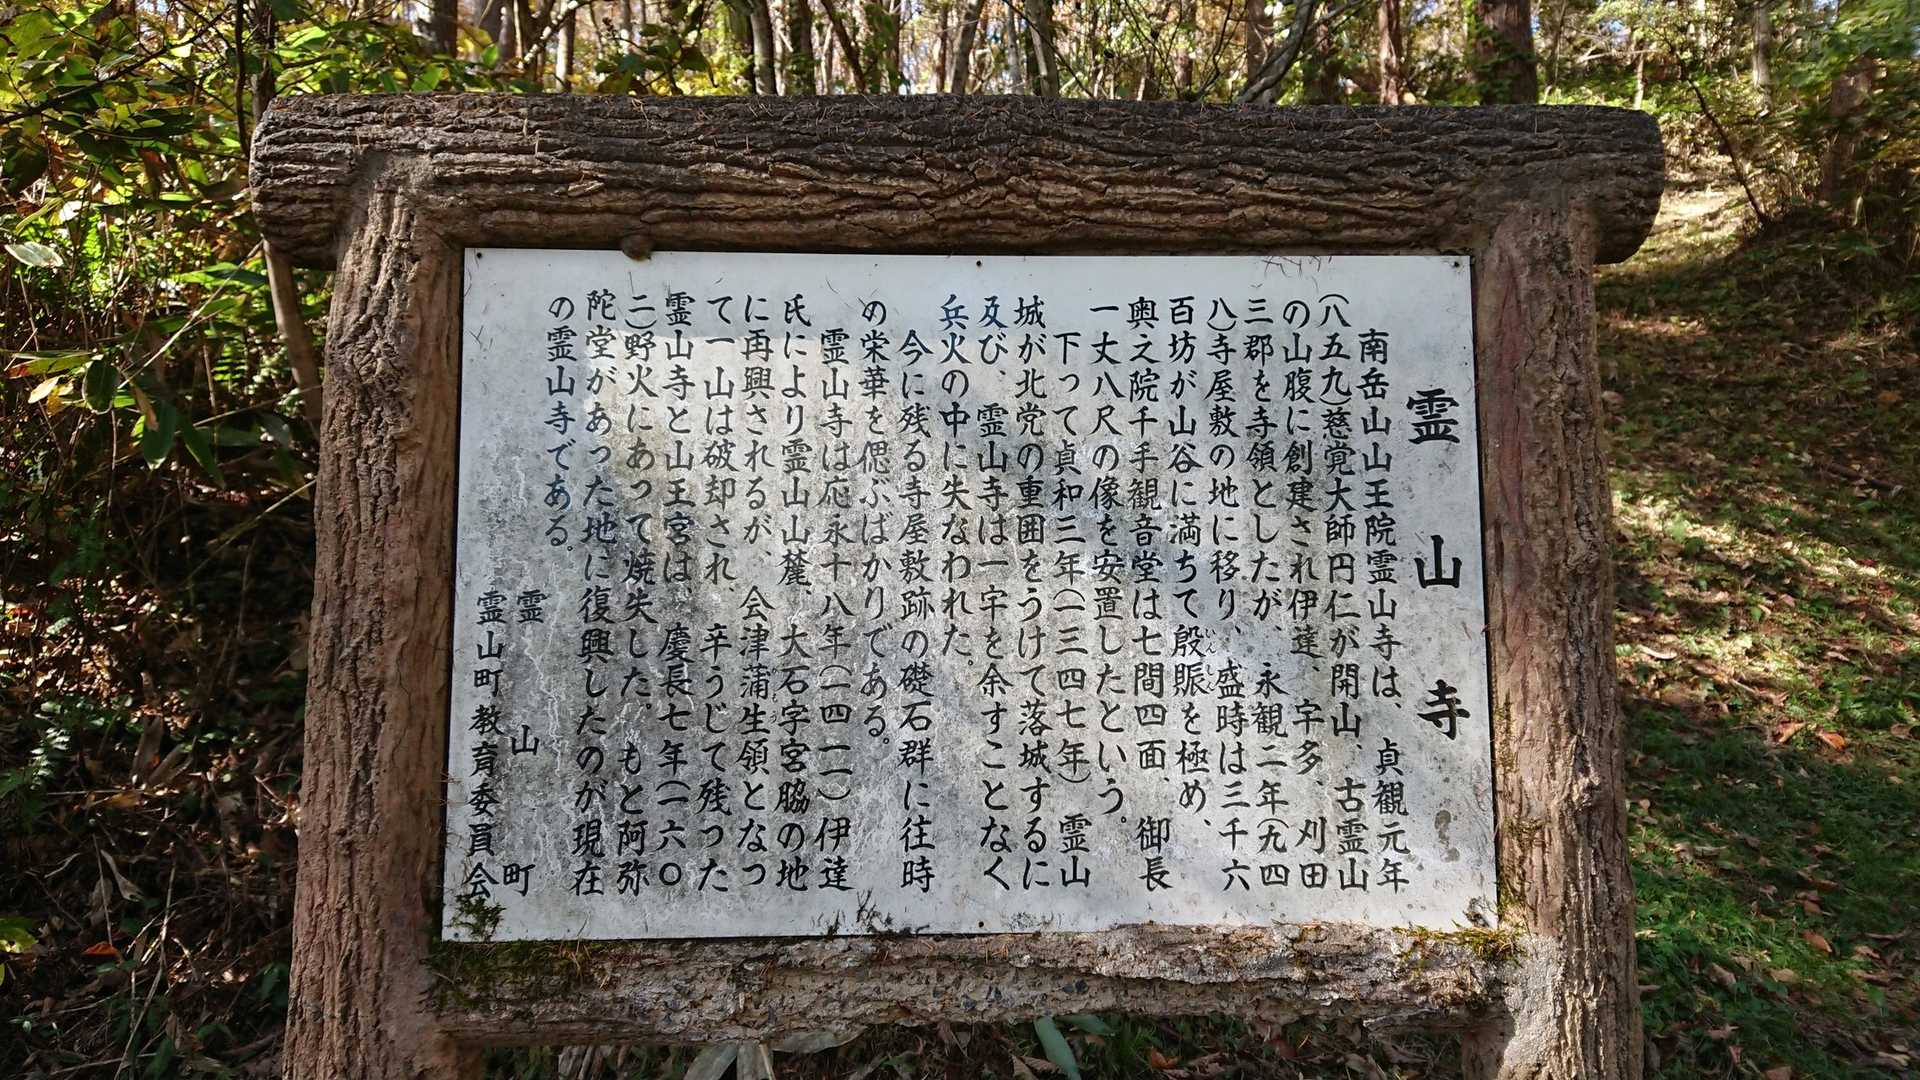 霊山寺
南岳山山王院霊山寺は、貞観元年
(八五九)慈覚大師円仁が開山、古霊山
の山腹に創建され伊達、宇多、刈田
三郡を寺領としたが、永観二年(九四
八)寺屋敷の地に移り、盛時は三千六
百坊が山谷に満ちて殷賑を極め、
いんしん
奥之院千手観音堂は七間四面、御長
一丈八尺の像を安置したという。
下って貞和三年(一三四七年)霊山
城が北党の重囲をうけて落城するに
及び、霊山寺は一宇を余すことなく
兵火の中に失なわれた。
今に残る寺屋敷跡の礎石群に往時
の栄華を偲ぶばかりである。
霊山寺は応永十八年(一四一一)伊達
氏により霊山山麓、大石字宮脇の地
に再興されるが、会津蒲生領となっ
もう
て一山は破却され、辛うじて残った
霊山寺と山王宮は、慶長七年(一六〇
二)野火にあって焼失した。もと阿弥
陀堂があった地に復興したのが現在
の霊山寺である。
霊山町
霊山町教育委員会